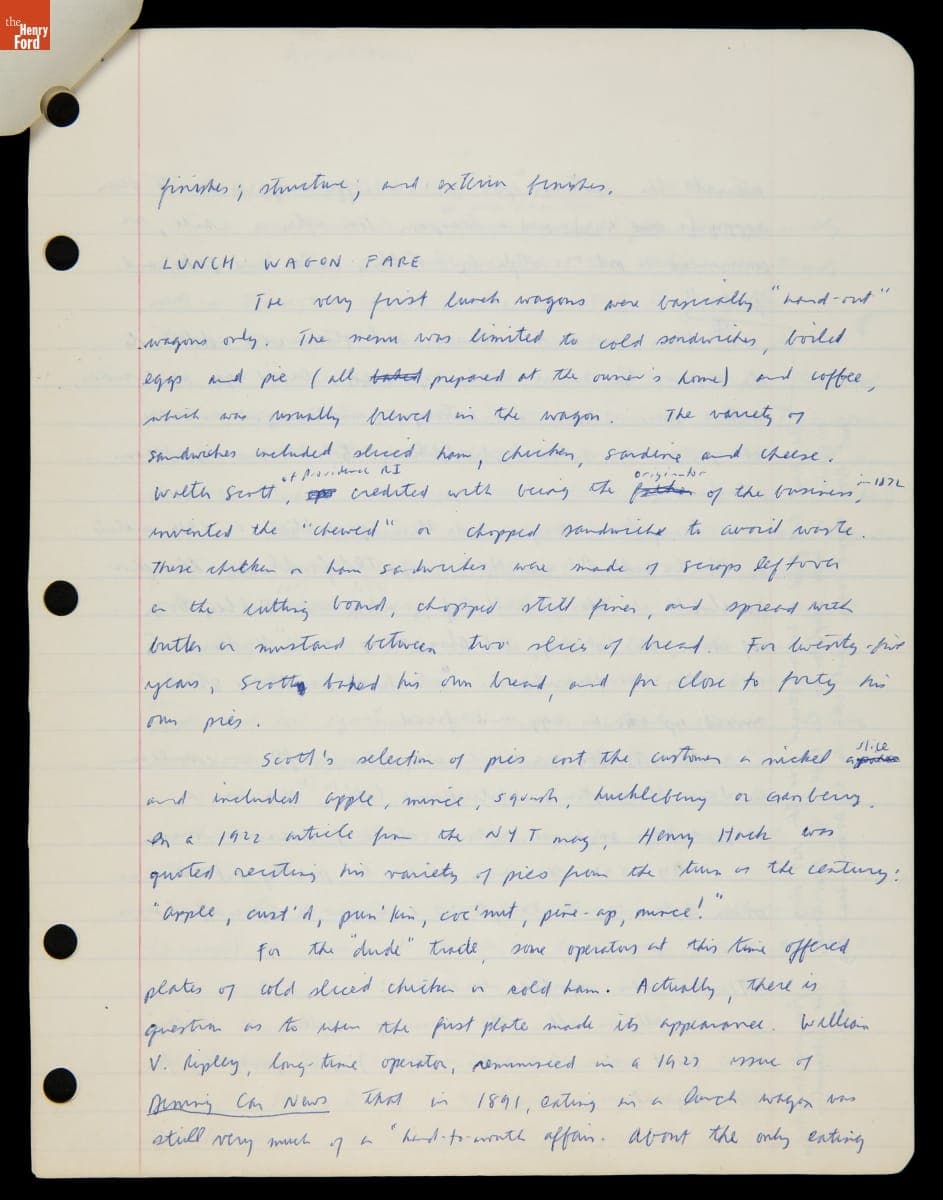 the
Henry
Ford
finishes; structure; and exterior finishes.
LUNCH WAGON FARE
The very first lunch wagons were basically "hand-out"
wagons only. The menu was limited to cold sandwiches, boiled
eggs and pie (all baked prepared at the owner's home) and coffee,
which was usually brewed in the wagon. The variety of
sandwiches included sliced ham, chicken, sardine and cheese.
of Providence RI originator
Walter Scott, credited with being the father of the business, in 1872
invented the "chewed" or chopped sandwich to avoid waste.
These chicken or ham sandwiches were made of scraps leftover
on the cutting board, chopped still finer, and spread with
butter or mustard between two slices of bread. For twenty-five
years, Scott baked his own bread, and for close to forty his
own pies.
Scott's selection of pies cost the customer a nickel a slice
and included apple, mince, squash, huckleberry or cranberry.
In a 1922 article from the NYT mag, Henry Hack was
quoted reciting his variety of pies from the turn of the century:
"apple, cust'd, pun'kin, coc'nut, pine-ap, mince!"
For the "dude" trade, some operators at this time offered
plates of cold sliced chicken or cold ham. Actually, there is
question as to when the first plate made its appearance. William
V. Ripley, long-time operator, reminisced in a 1927 issue of
Dining Car News that in 1891, eating in a lunch wagon was
still very much of a "hand-to-mouth affair. About the only eating